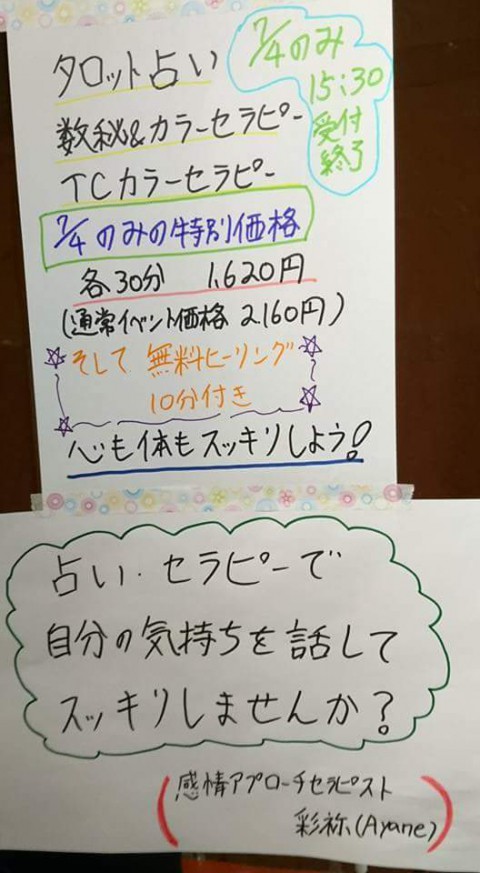 タロット占い
数秘&カラーセラピー
TCカラーセラピー
7/4のみ
15:30
受付
終了
7/4のみの特別価格
各30分 1,620円
(通常イベント価格 2,160円)
そして 無料ヒーリング
10分付き
心も体もスッキリしよう!
占い・セラピーで
自分の気持ちを話して
スッキリしませんか?
感情アプローチセラピスト
彩祢(Ayane)